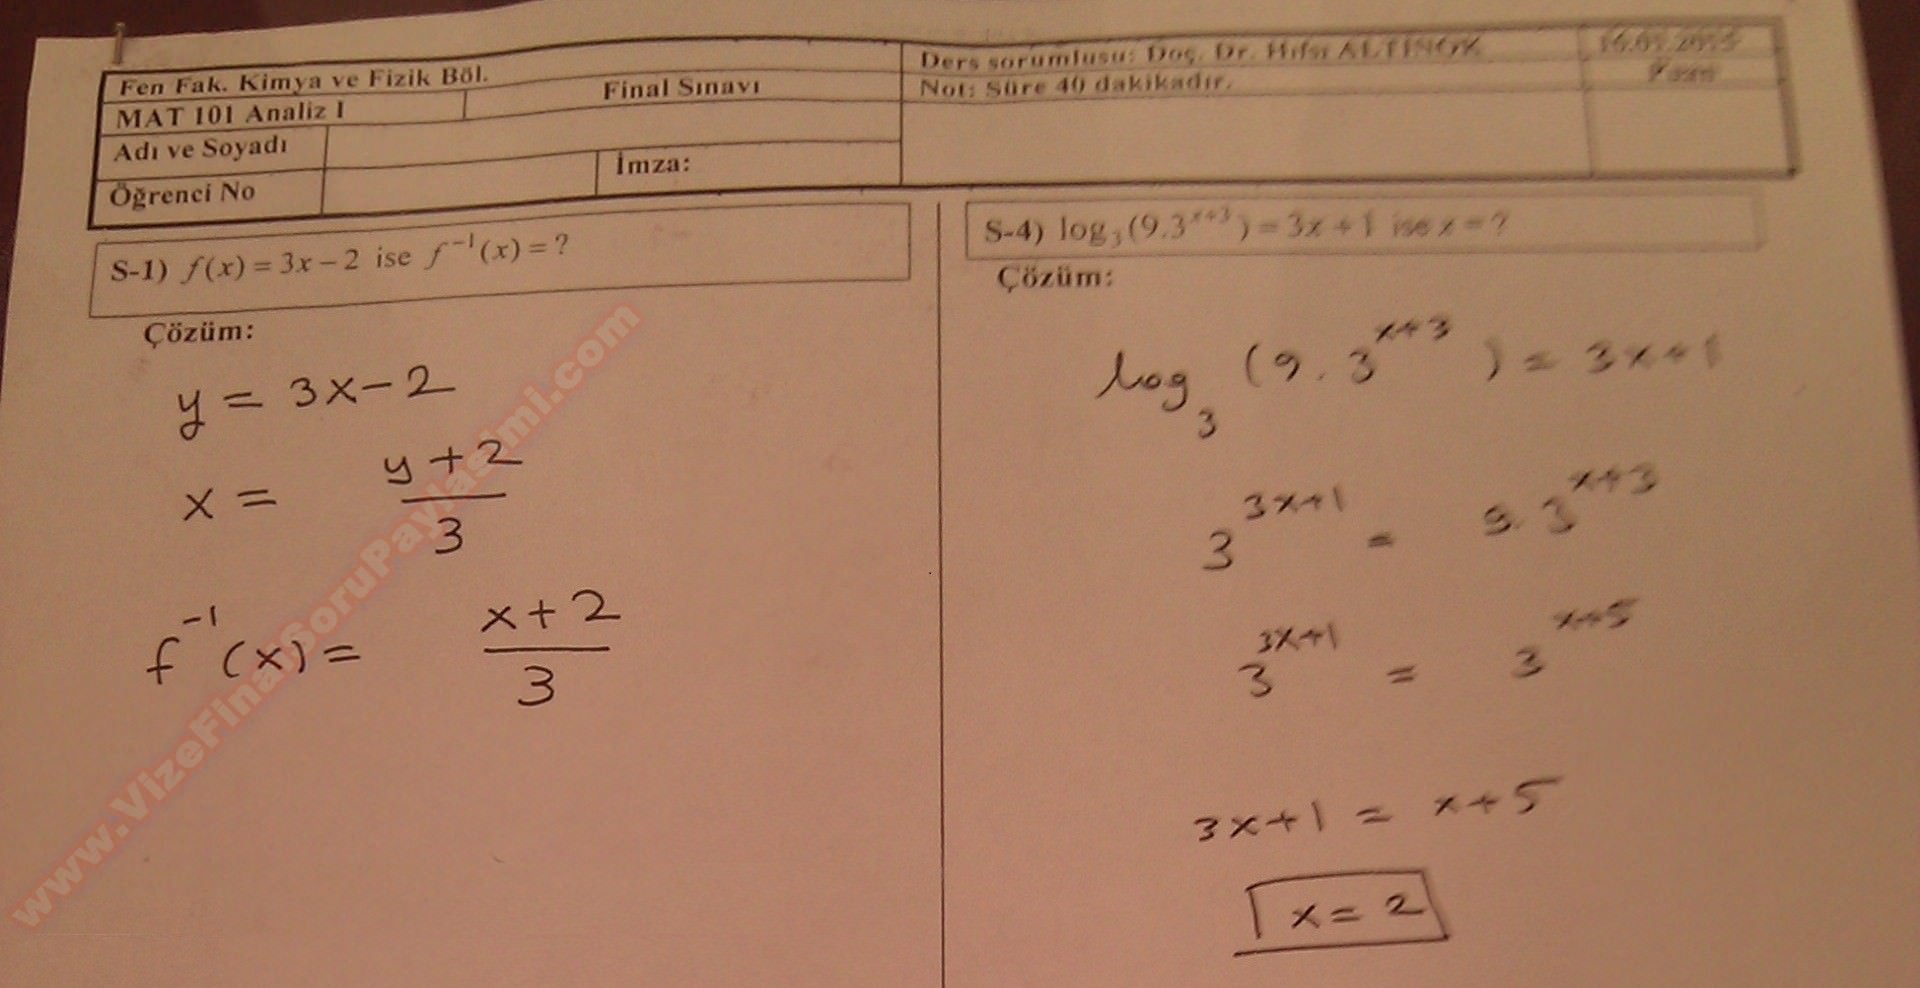 Fen Fak. Kimya ve Fizik Böl.
MAT 101 Analiz I
Final Sınavı
Ders sorumlusu: Doç. Dr. Hıfsı ALTINOK
Not: Süre 40 dakikadır.
Adı ve Soyadı
Öğrenci No
İmza:
S-1) f(x) = 3x − 2 ise f⁻¹(x) = ?
Çözüm:
y = 3x − 2
x = (y + 2)/3
f⁻¹(x) = (x + 2)/3
S-4) log₃(9.3^(x+3)) = 3x + 1 ise x = ?
Çözüm:
log₃ (9 . 3^(x+3)) = 3x + 1
3^(3x+1) = 9 . 3^(x+3)
3^(3x+1) = 3^(x+5)
3x + 1 = x + 5
x = 2
www.VizeFinalSoruPaylasimi.com